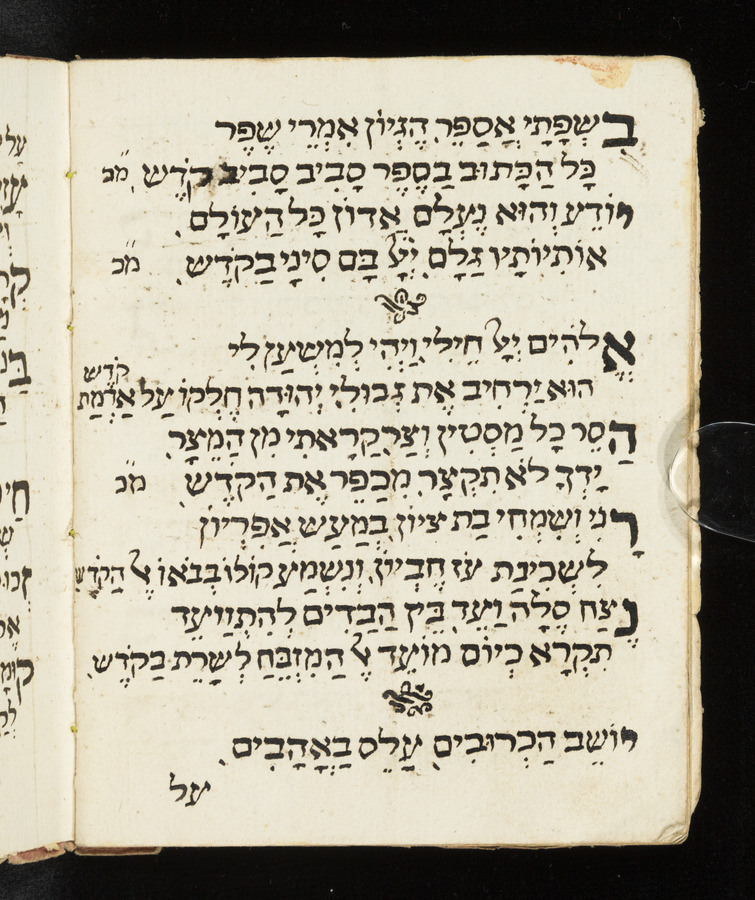 בִּשְׂפָתַי אֲסַפֵּר הֶגְיוֹן אִמְרֵי שֶׁפֶר
כָּל הַכָּתוּב בַּסֵּפֶר סָבִיב סָבִיב קֹדֶשׁ מ״כ
יוֹדֵעַ וְהוּא נֶעְלָם אֲדוֹן כָּל הָעוֹלָם
אוֹתִיּוֹתָיו גַּלָּם יְ״יָ בָּם סִינַי בַּקֹּדֶשׁ מ״כ
אֱלֹהִים יְ״יָ חֵילִי וַיְהִי לְמִשְׁעָן לִי
הוּא יַרְחִיב אֶת גְּבוּלִי יְהוּדָה חֶלְקוֹ עַל אַדְמַת קֹדֶשׁ
הָסֵר כָּל מַסְטִין וְצַר קְרָאתִי מִן הַמֵּצַר
יָדְךָ לֹא תִקְצַר מְכַפֵּר אֶת הַקֹּדֶשׁ מ״כ
רָנִּי וְשִׂמְחִי בַת צִיּוֹן בְּמַעַשׂ אַפִּרְיוֹן
לִשְׁכִינַת עֹז חֶבְיוֹן וְנִשְׁמַע קוֹלוֹ בְּבֹאוֹ אֶל הַקֹּדֶשׁ
נֶצַח סֶלָה וָעֶד בֵּין הַבַּדִּים לְהִתְוַועֵד
תִּקְרָא כְּיוֹם מוֹעֵד אֶל הַמִּזְבֵּחַ לְשָׁרֵת בַּקֹּדֶשׁ
יוֹשֵׁב הַכְּרוּבִים עָלֵס בָּאֳהָבִים
על